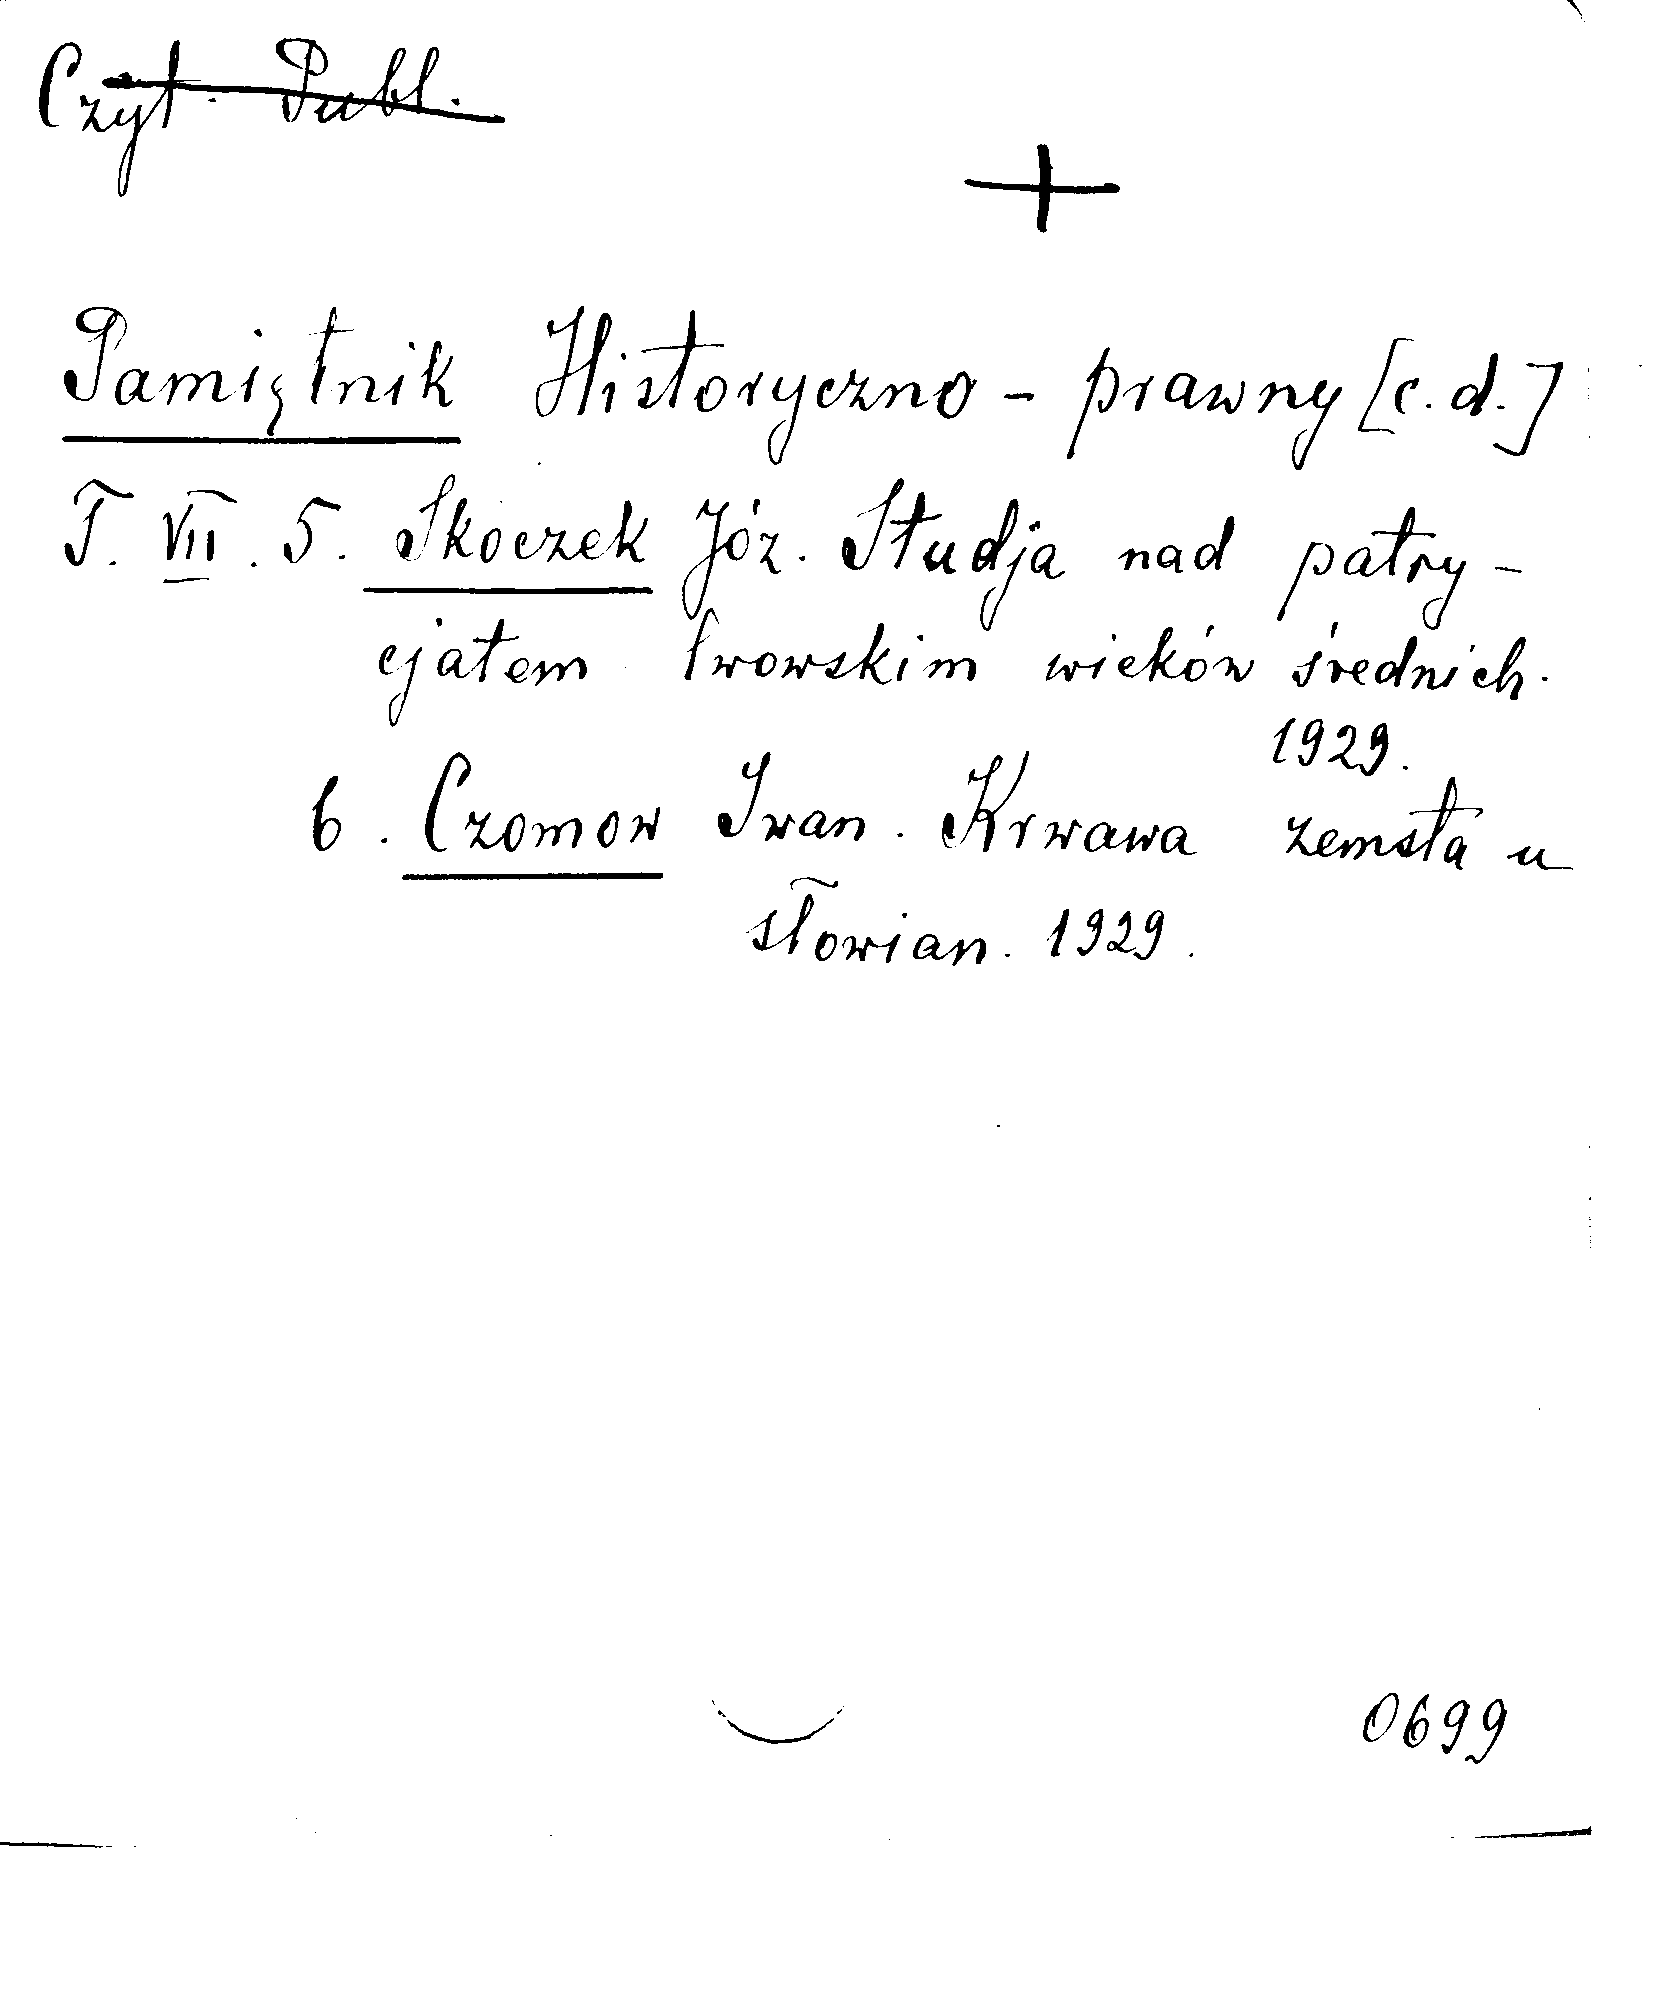 Czyt. Publ.
+
Pamiętnik Historyczno - prawny [c.d.]
T. VII. 5. Skoczek Józ. Studja nad patry-
cjatem lwowskim wieków średnich.
1929.
6. Czomow Iwan. Krwawa zemsta u
słowian. 1929.
0699